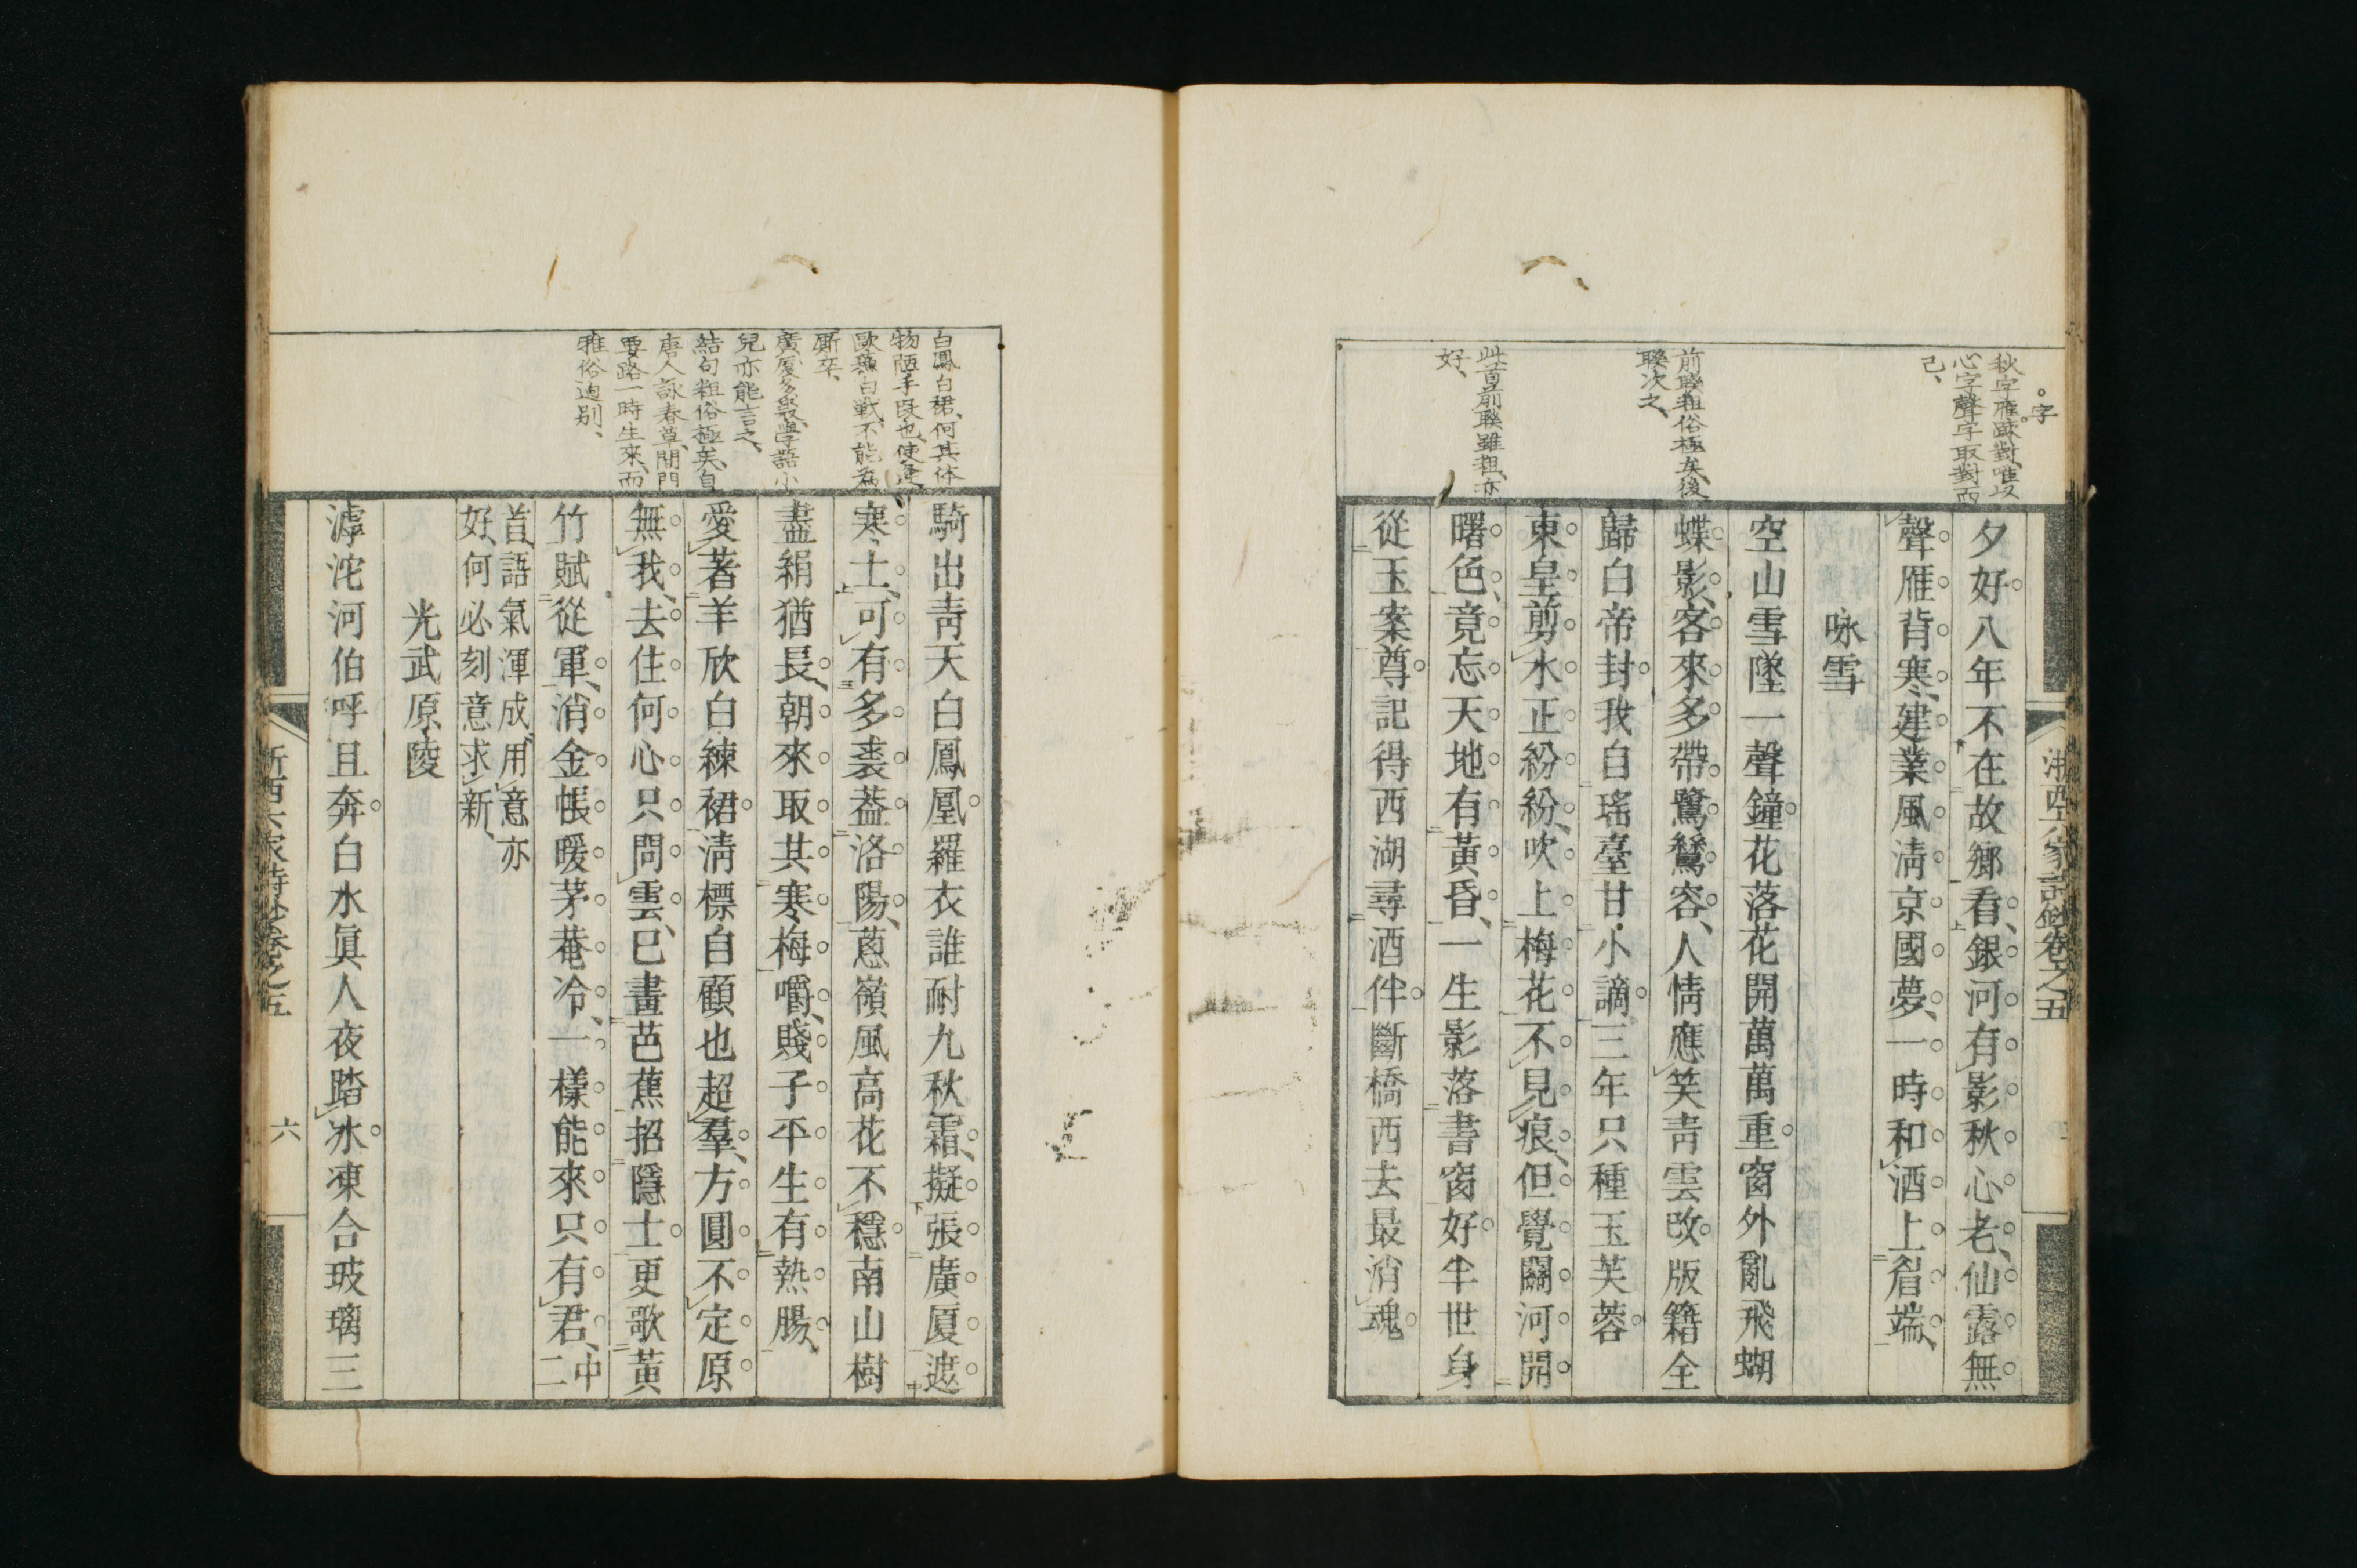 浙西六家詩鈔卷之五
字
秋字雁疎對唯以
心字聲字取對而
已、
夕好八年不在故鄉看、銀河有影秋心老、仙露無
聲雁背寒、建業風淸京國夢、一時和酒上眉端、
咏雪
空山雪墜一聲鐘花落花開萬萬重窗外亂飛蝴
前聯粗俗極矣、後
聯次之、
蝶影、客來多帶鷺鷥容、人情應笑靑雲改版籍全
歸白帝封我自瑤臺甘小謫三年只種玉芙蓉
東皇剪水正紛紛、吹上梅花不見痕、但覺關河開
此首前聯雖粗、亦
好、
曙色、竟忘天地有黃昏、一生影落書窗好半世身
從玉案尊記得西湖尋酒伴斷橋西去最消魂
白鳳白裙、何其体
物陋手段也、使逢
歐蘇白戰、不能為
廝卒、
廣厦多裘、學語小
兒亦能言之、
結句粗俗極矣、自
唐人詠春草、閒門
要路一時生來、而
雅俗逈別、
騎出靑天白鳳凰羅衣誰耐九秋霜、擬張廣厦遮
寒士、可有多裘葢洛陽、蔥嶺風高花不穩南山樹
盡絹猶長、朝來取其寒梅嚼、賤子平生有熱腸、
愛著羊欣白練裙淸標自顧也超羣、方圓不定原
無我、去住何心只問雲、已畫芭蕉招隱士更歌黃
竹賦從軍、消金帳暖茅菴冷、一樣能來只有君、中二
首、語氣渾成、用意亦
好、何必刻意求新、
光武原陵
滹沱河伯呼且奔白水眞人夜踏氷凍合玻璃三
浙西六家詩鈔卷之五
六